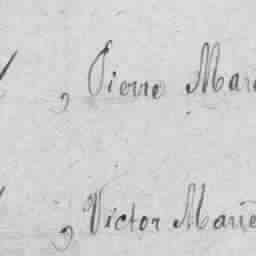 , Pierre Mari
, Victor Marie